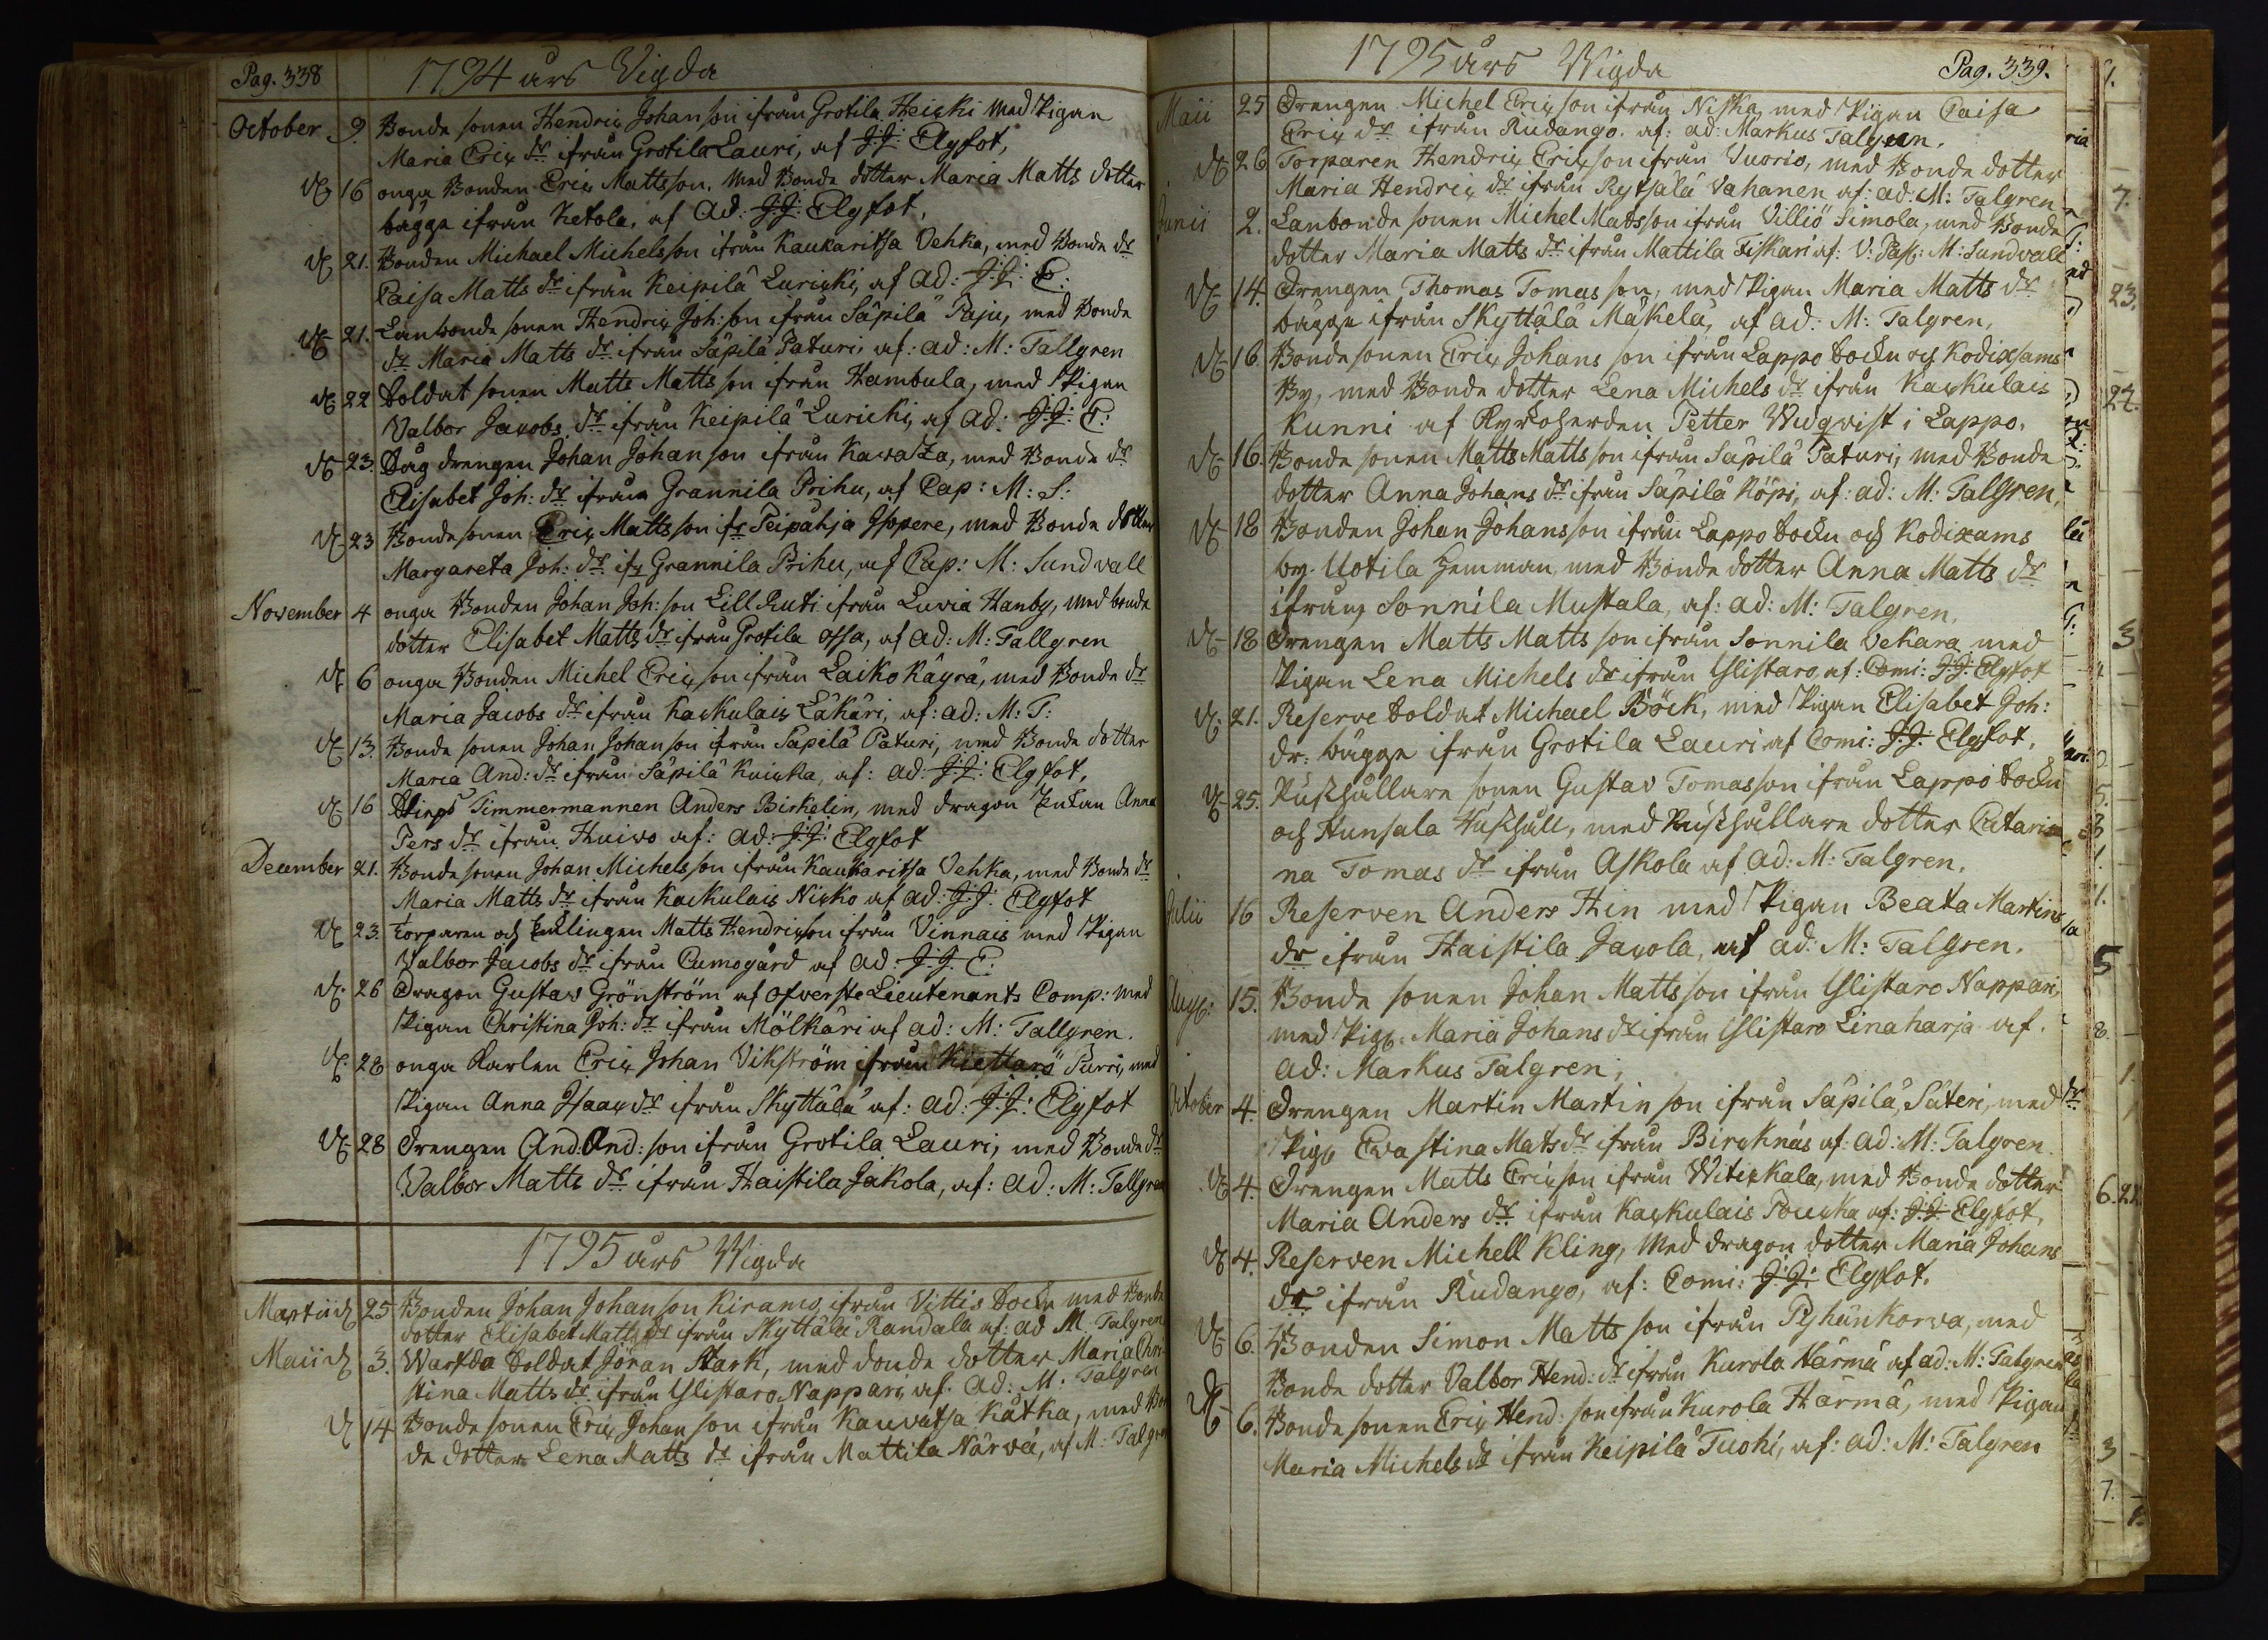 Pag. 338 1794 års Vigda
October 9. Bonde sonen Hendrix Johan son ifrån Grotila Heicki med Pigan
Maria Erix dr ifrån Grotila Lauri, af J:J: Elgfot,
16 onga Bonden Erix Mattsson, med Bonde dotter Maria Matts dotter
bägge ifrån Ketola, af Ad: J:J: Elgfot,
21. Bonden Michael Michelsson ifrån Kaukaritsa Vehka, med Bonde dr
Caisa Matts dr ifrån Keipilä Luricki, af ad: J:J: E:
21. Lanbonde sonen Hendrix Joh: son ifrån Säpilä Paju, med Bonde
dr Maria Matts dr ifrån Säpilä Paturi, af: ad: M: Tallgren
22 Soldat sonen Matts Mattsson ifrån Hambula, med Pigan
Valbor Jacobs dr ifrån Keipilä Luricki, af ad: J:J: E:
23. Såg drengen Johan Johan son ifrån Kawaza, med Bonde dr
Elisabet Joh: dr ifrån Grannila Prihu, af Cap: M: S:
23 Bonde sonen Erix Mattsson ifr Peipähja Ispere, med Bonde dotter
Margareta Joh: dr ifr Grannila Prihu, af Cap: M: Sundvall
November 4 onga Bonden Johan Joh: son Lill Ruti ifrån Luvia Hanby, med bonde
dotter Elisabet Matts dr ifrån Grotila Ossa, af ad: M: Tallgren
6 onga Bonden Michel Erix son ifrån Laiko Käyrä, med Bonde dr
Maria Jacobs dr ifrån Kackulais Läkäri, af: ad: M: T:
13. Bonde sonen Johan Johan son ifrån Säpilä Paturi, med Bonde dotter
Maria And: dr ifrån Säpilä Kuicka, af: ad: J:J: Elgfot,
16 Timmermannen Anders Birkelin, med dragon Änkan Anna
Pers dr ifrån Huivo af: ad: J:J: Elgfot
December 21. Bonde sonen Johan Michelsson ifrån Kaukaritsa Vehka, med Bonde dr
Maria Matts dr ifrån Kackulais Nicko af ad: J:J: Elgfot
23. Torparen och Enklingen Matts Hendrixson ifrån Vinnais med Pigan
Valbor Jacobs dr ifrån Cumogård af ad: J:J: E:
26 Dragon Gustav Grönström af Ofverste Lieutenants Comp: med
Pigan Christina Joh: dr ifrån Mölkäri af ad: M: Tallgren.
28 onga Karlen Erix Johan Vikström ifrån Kiettarö Purri, med
Pigan Anna Isaax dr ifrån Skyttälä af: ad: J:J: Elgfot
28 Drengen And: And: son ifrån Grotila Lauri, med Bonde dr
Valbor Matts dr ifrån Haistila Jakola, af: ad: M: Tallgren
1795 års Wigda
Martii 25 Bonden Johan Johanson Kiramo, ifrån Vittis Sockn med Bonde
dotter Elisabet Matts dr ifrån Skyttälä Randala af: ad M. Talgren
Maii 3. Soldat Jöran Stark, med bonde dotter Maria Chri
stina Matts dr ifrån Ylistaro Nappari, af: ad: M: Talgren
14 Bonde sonen Erix Johan son ifrån Kauvatsa Kätka, med Bon
de dotter Lena Matts dr ifrån Mattila Närvä, af M: Talgren
1795 års Wigda Pag. 339.
Maii 25 Drengen Michel Erixson ifrån Niska, med Pigan Caisa
Erix dr ifrån Rudango. af: ad: Markus Talgren.
26 Torparen Hendrix Erixson ifrån Vuorio, med Bonde dotter
Maria Hendrix dr ifrån Rytsälä Vahanen af: ad: M: Talgren
Junii 2. Lanbonde sonen Michel Matsson ifrån Villiö Simola, med Bonde
dotter Maria Matts dr ifrån Mattila Fiskari af: V: Past: M: Sundvall
14. Drengen Thomas Tomas son, med Pigan Maria Matts dr
bägge ifrån Skyttälä Mäkelä, af ad: M: Talgren,
16. Bonde sonen Erix Johans son ifrån Lappo Sockn och Kodixsams
By, med Bonde dotter Lena Michels dr ifrån Kackulais
Kunni af Kyrkoherden Petter Widqvist i Lappo.
16. Bonde sonen Matts Matts son ifrån Säpilä Paturi, med Bonde
dotter Anna Johans dr ifrån Säpilä Köpi, af: ad: M: Talgren,
18 Bonden Johan Johansson ifrån Lappo Sockn och Kodixams
by. Uotila Hemman, med Bonde dotter Anna Matts dr
ifrån Sonnila Mustala, af: ad: M: Talgren,
18 Drengen Matts Matts son ifrån Sonnila Vekara med
Pigan Lena Michels dr ifrån Ylistaro, af: Comi: J:J: Elgfot
21. Reserve Soldat Michael Böck, med Pigan Elisabet Joh:
dr. bägge ifrån Grotila Lauri af Comi: J:J: Elgfot.
25. Rusthållare sonen Gustav Tomasson ifrån Lappo Sockn
och Hunsala Rusthåll, med Rusthållare dotter Catari
na Tomas dr ifrån Askola af ad: M: Talgren.
Julii 16 Reserven Anders Hin med Pigan Beata Martins
dr ifrån Haistila Jacola, af ad: M: Talgren.
Aug: 15. Bonde sonen Johan Matts son ifrån Ylistaro Nappari,
med Pig: Maria Johans dr ifrån Ylistaro Linaharja af.
ad: Markus Talgren;
October 4. Drengen Martin Martin son ifrån Säpilä, Säteri, med
Pig: Eva Stina Mats dr ifrån Bircknäs af: ad: M: Talgren.
4. Drengen Matts Erixson ifrån Witickala, med Bonde dotter
Maria Anders dr ifrån Kackulais Poucka af: J:J: Elgfot,
4. Reserven Michell Kling, med dragon dotter Maria Johans
dr ifrån Rudango, af: Comi: J:J: Elgfot.
6. Bonden Simon Matts son ifrån Pyhänkorva, med
Bonde dotter Valbor Hend: dr ifrån Kurola Härmä af ad: M: Talgren
6. Bonde sonen Erix Hend: son ifrån Kurola Härmä, med Pigan
Maria Michels dr ifrån Keipilä Tuohi, af: ad: M: Talgren